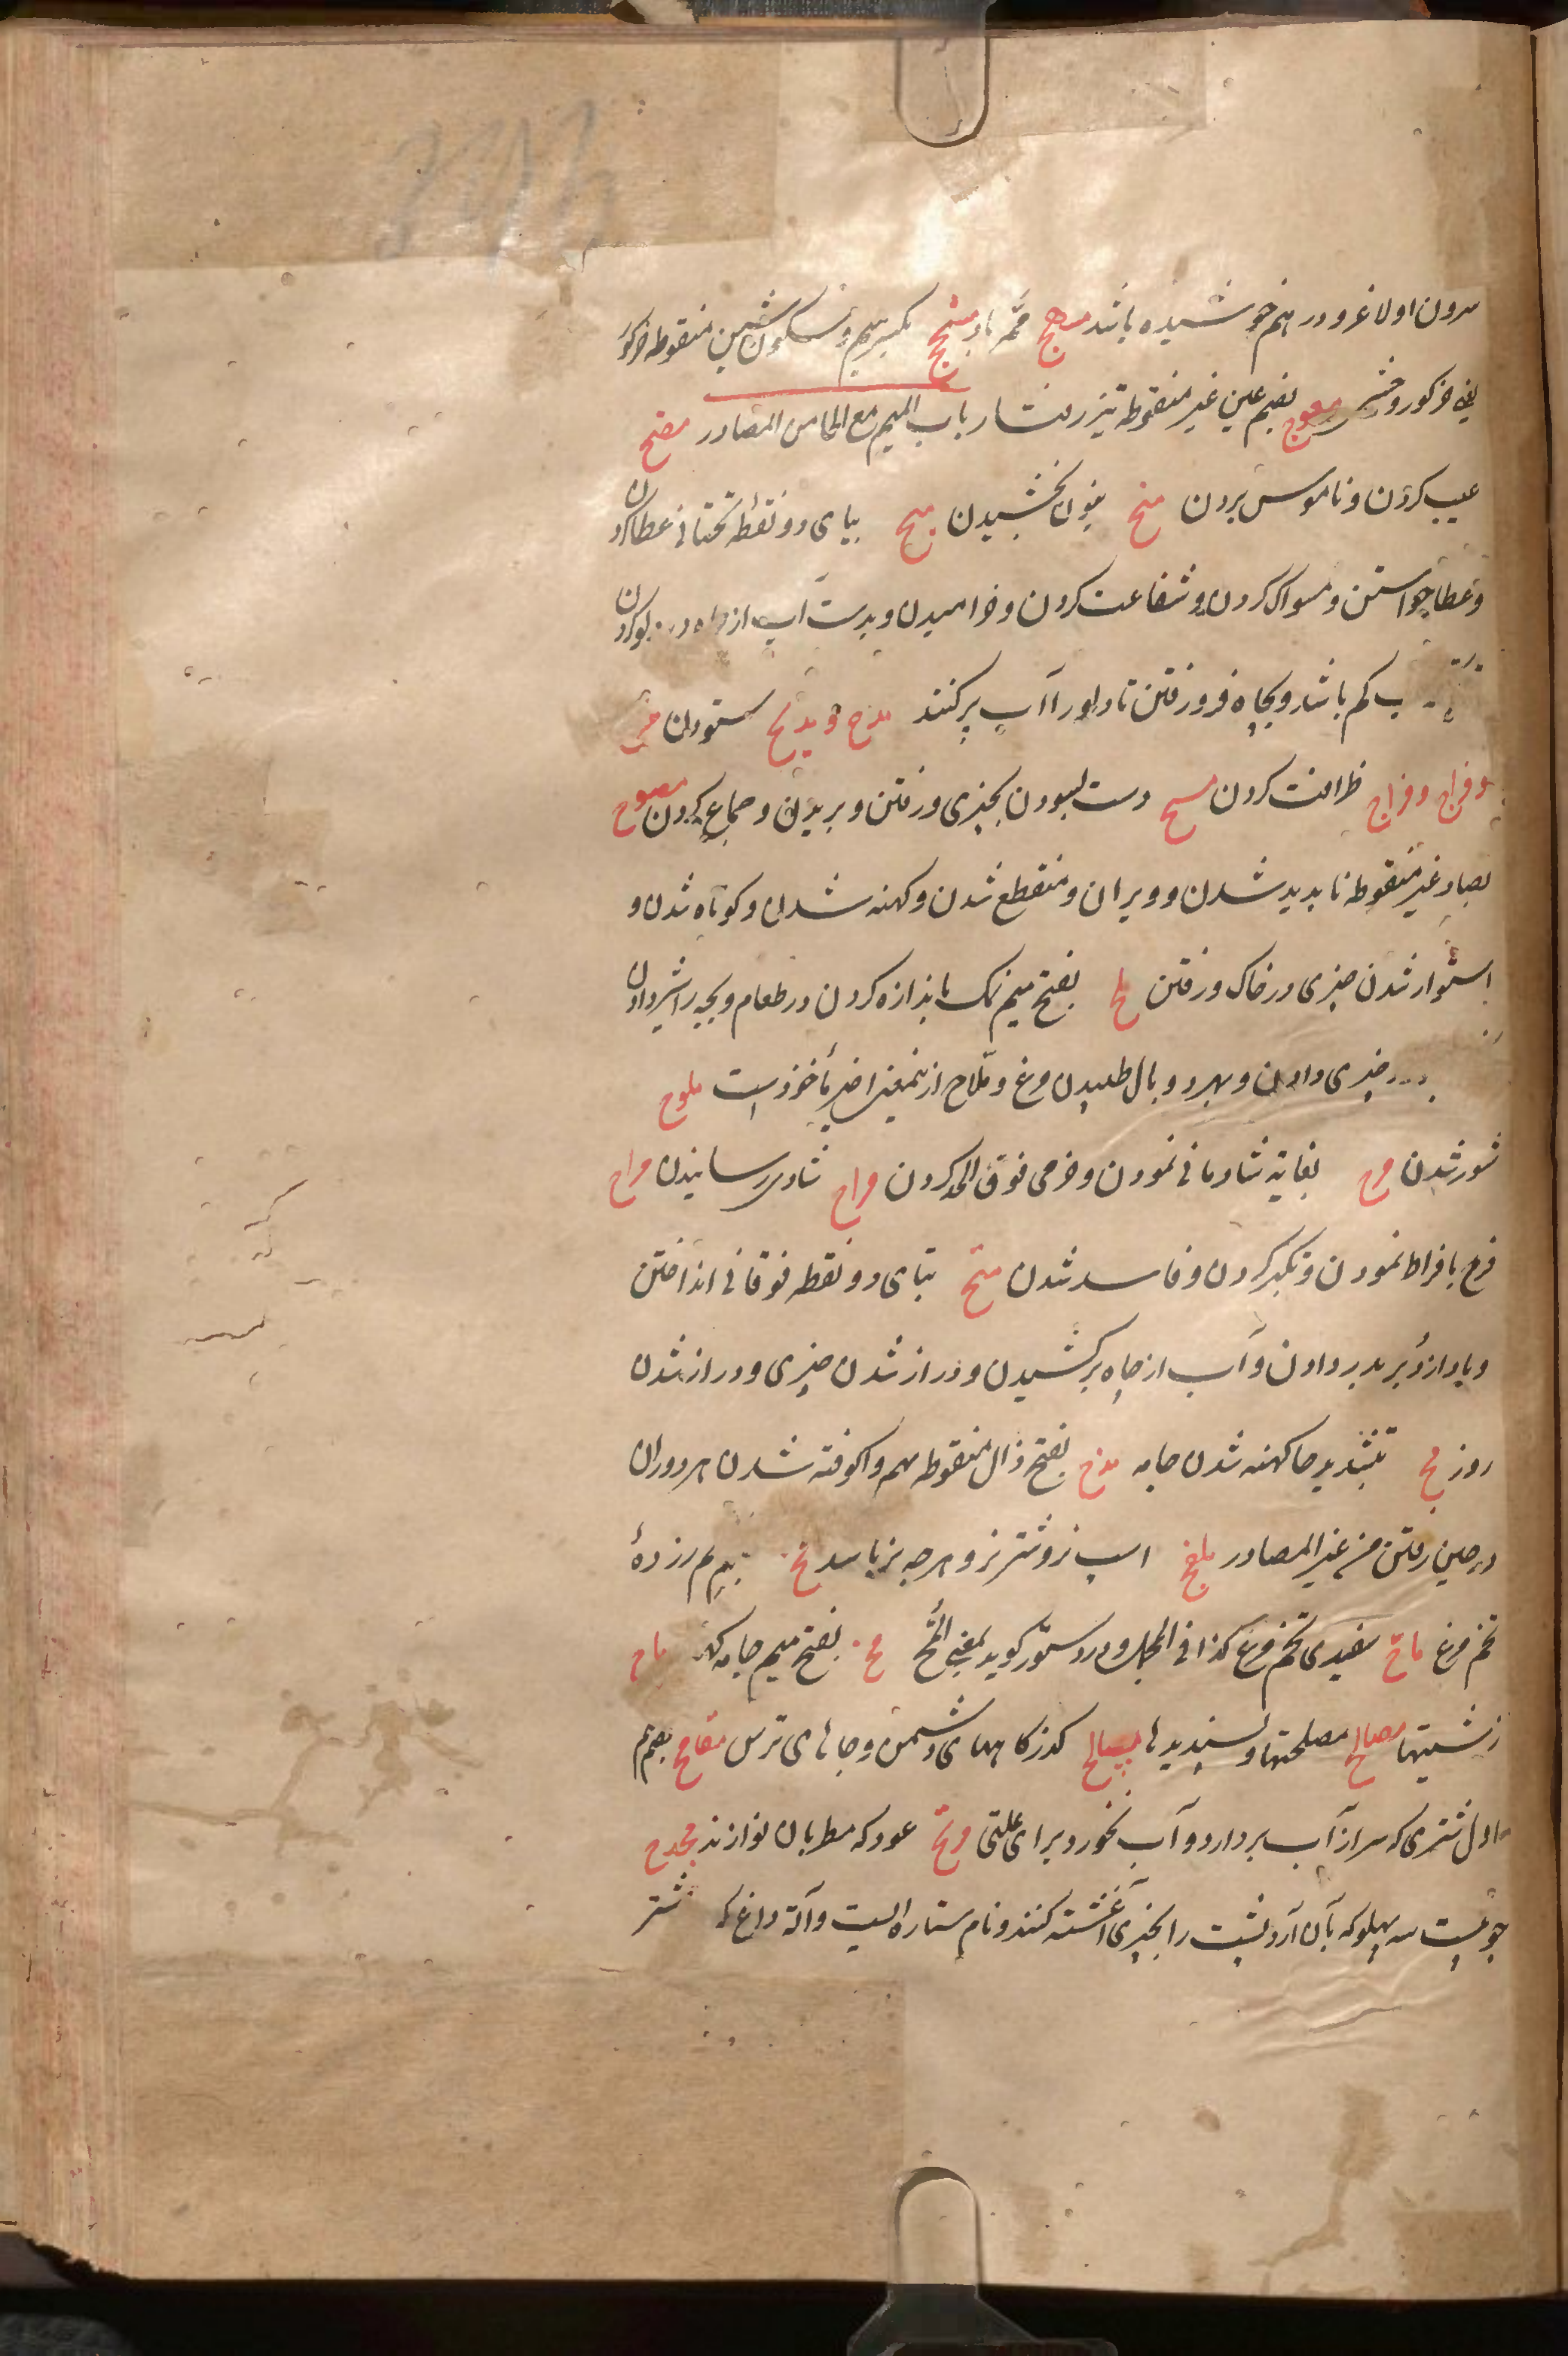 سرون او لاغر و در هم خوشیده باشد ممرّ باد مشج بکسر میم و سکون شین منقوطه
معوج بضم عین غیر منقوطه تیز رفتار باب المیم مع الحا من المصادر مضح
عیب کردن و ناموس بردن منح بنون بخشیدن میح بیای دو نقطه تحتانی عطا کردن
و عطا خواستن و مسواک کردن و شفاعت کردن و خرامیدن و بدست آب از چاه در دلو کردن
کم باشد و بچاه فرو رفتن تا دلو را آب پر کنند مدح و مدیح ستودن مزح
و مزاح و مزاح ظرافت کردن مسح دست بسودن بچیزی و رفتن و بریدن و جماع کردن مصوح
بصاد غیر منقوطه ناپدید شدن و ویران و منقطع شدن و کهنه شدن و کوتاه شدن و
استوار شدن چیزی در خاک و رفتن ملح بفتح میم نمک باندازه کردن در طعام و بچه را شیر دادن
چیزی دادن و بهر دو بال طپیدن مرغ و ملّاح ازین معنی اخیر مأخوذست ملوح
شور شدن مرح بغایة شادمانی نمودن و خرمی فوق الحد کردن مراح شادی رسانیدن مراح
فرح بافراط نمودن و تکبر کردن و فاسد شدن متح بتای دو نقطه فوقانی انداختن
و باد از دبر بدر دادن و آب از چاه برکشیدن و دراز شدن چیزی و دراز شدن
روز مح بتشدید حا کهنه شدن جامه مذح بفتح ذال منقوطه بهم واکوفته شدن هر دو ران
در حین رفتن من غیر المصادر اسب نر و شتر نر و هرچه نر باشد مح بضم میم زرده
تخم مرغ ماح سفیدی تخم مرغ کذا فی المجمل و در دستور گوید بمعنی المح مح بفتح میم جامه کهنه
زشتیها مصالح مصلحتها و پسندیدها مسالح گذرگاههای دشمن و جاهای ترس مقامح بضم میم
اول شتری که سر از آب بردارد و آب نخورد برای علتی عود که مطربان نوازند مجدح
چوبیست سه پهلو که بآن آرد پست را بچیزی آغشته کنند و نام ستاره ایست و آلة داغ که شتر